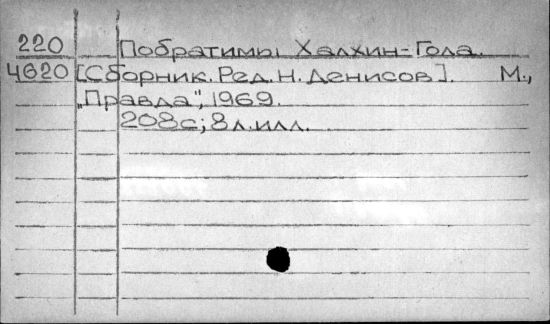 220 Побратимы Халхин-Гола.
4620 [Сборник. Ред. Н. Денисов]. М.,
„Правда", 1969.
208с; 8 л. илл.